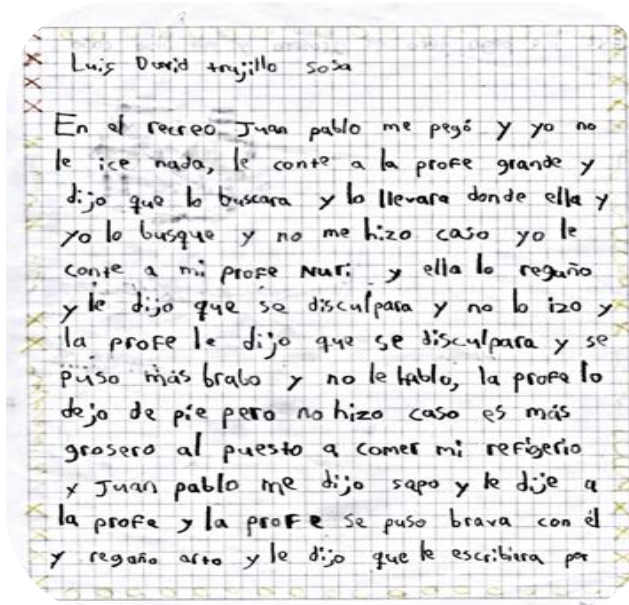 Luis David trujillo sosa
En el recreo Juan pablo me pegó y yo no
le ice nada, le conte a la profe grande y
dijo que lo buscara y lo llevara donde ella y
yo lo busque y no me hizo caso yo le
conte a mi profe Nuri y ella lo regaño
y le dijo que se disculpara y no lo izo y
la profe le dijo que se disculpara y se
puso más brabo y no le hablo, la profe lo
dejo de pie pero no hizo caso es más
grosero al puesto a comer mi refigerio
y Juan pablo me dijo sapo y le dije a
la profe y la profe se puso brava con él
y regaño arto y le dijo que le escribiera por